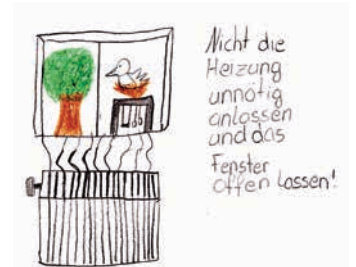 Nicht die
Heizung
unnötig
anlassen
und das
Fenster
offen lassen!